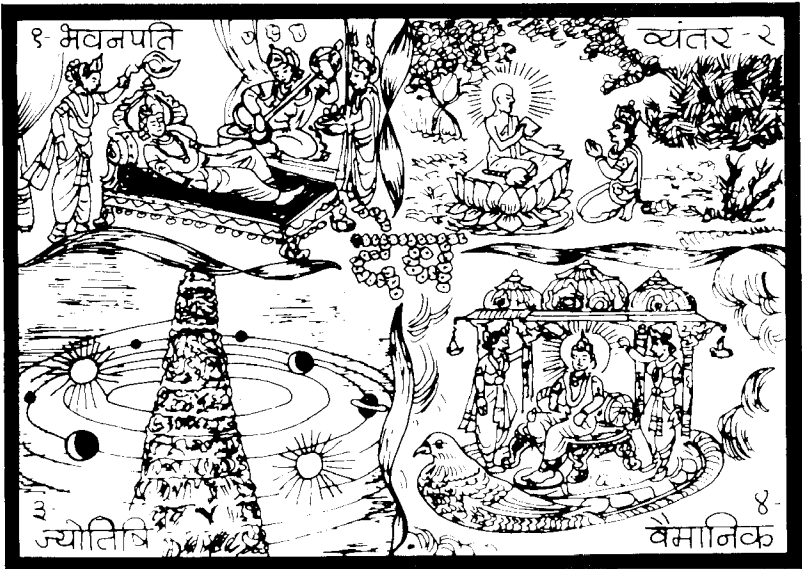 १- भवनपति
व्यंतर - २
देव
३-
ज्योतिषि
४-
वैमानिक